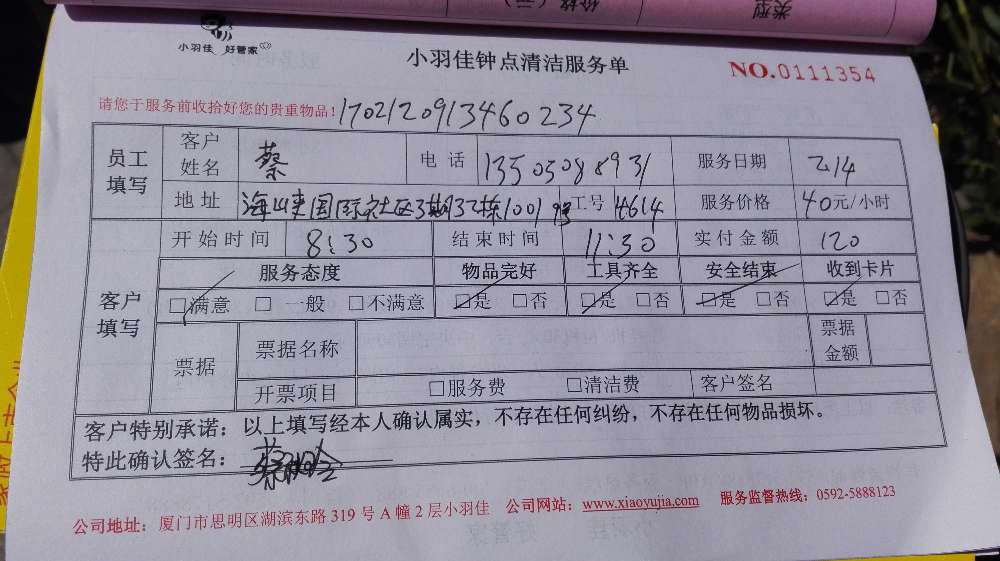 价格(元) 类型
小羽佳 好管家
小羽佳钟点清洁服务单
NO.0111354
请您于服务前收拾好您的贵重物品！170212091346 0234
员工填写 客户姓名 蔡 电话 13503088931 服务日期 2.14
地址 海峡国际社区3期37栋1001号 工号 14614 服务价格 40元/小时
客户填写 开始时间 8:30 结束时间 11:30 实付金额 120
服务态度 物品完好 工具齐全 安全结束 收到卡片
□满意 □一般 □不满意 □是 □否 □是 □否 □是 □否 □是 □否
票据 票据名称 票据金额
开票项目 □服务费 □清洁费 客户签名
客户特别承诺：以上填写经本人确认属实，不存在任何纠纷，不存在任何物品损坏。
特此确认签名：蔡
公司地址：厦门市思明区湖滨东路319号A幢2层小羽佳 公司网站：www.xiaoyujia.com 服务监督热线：0592-5888123